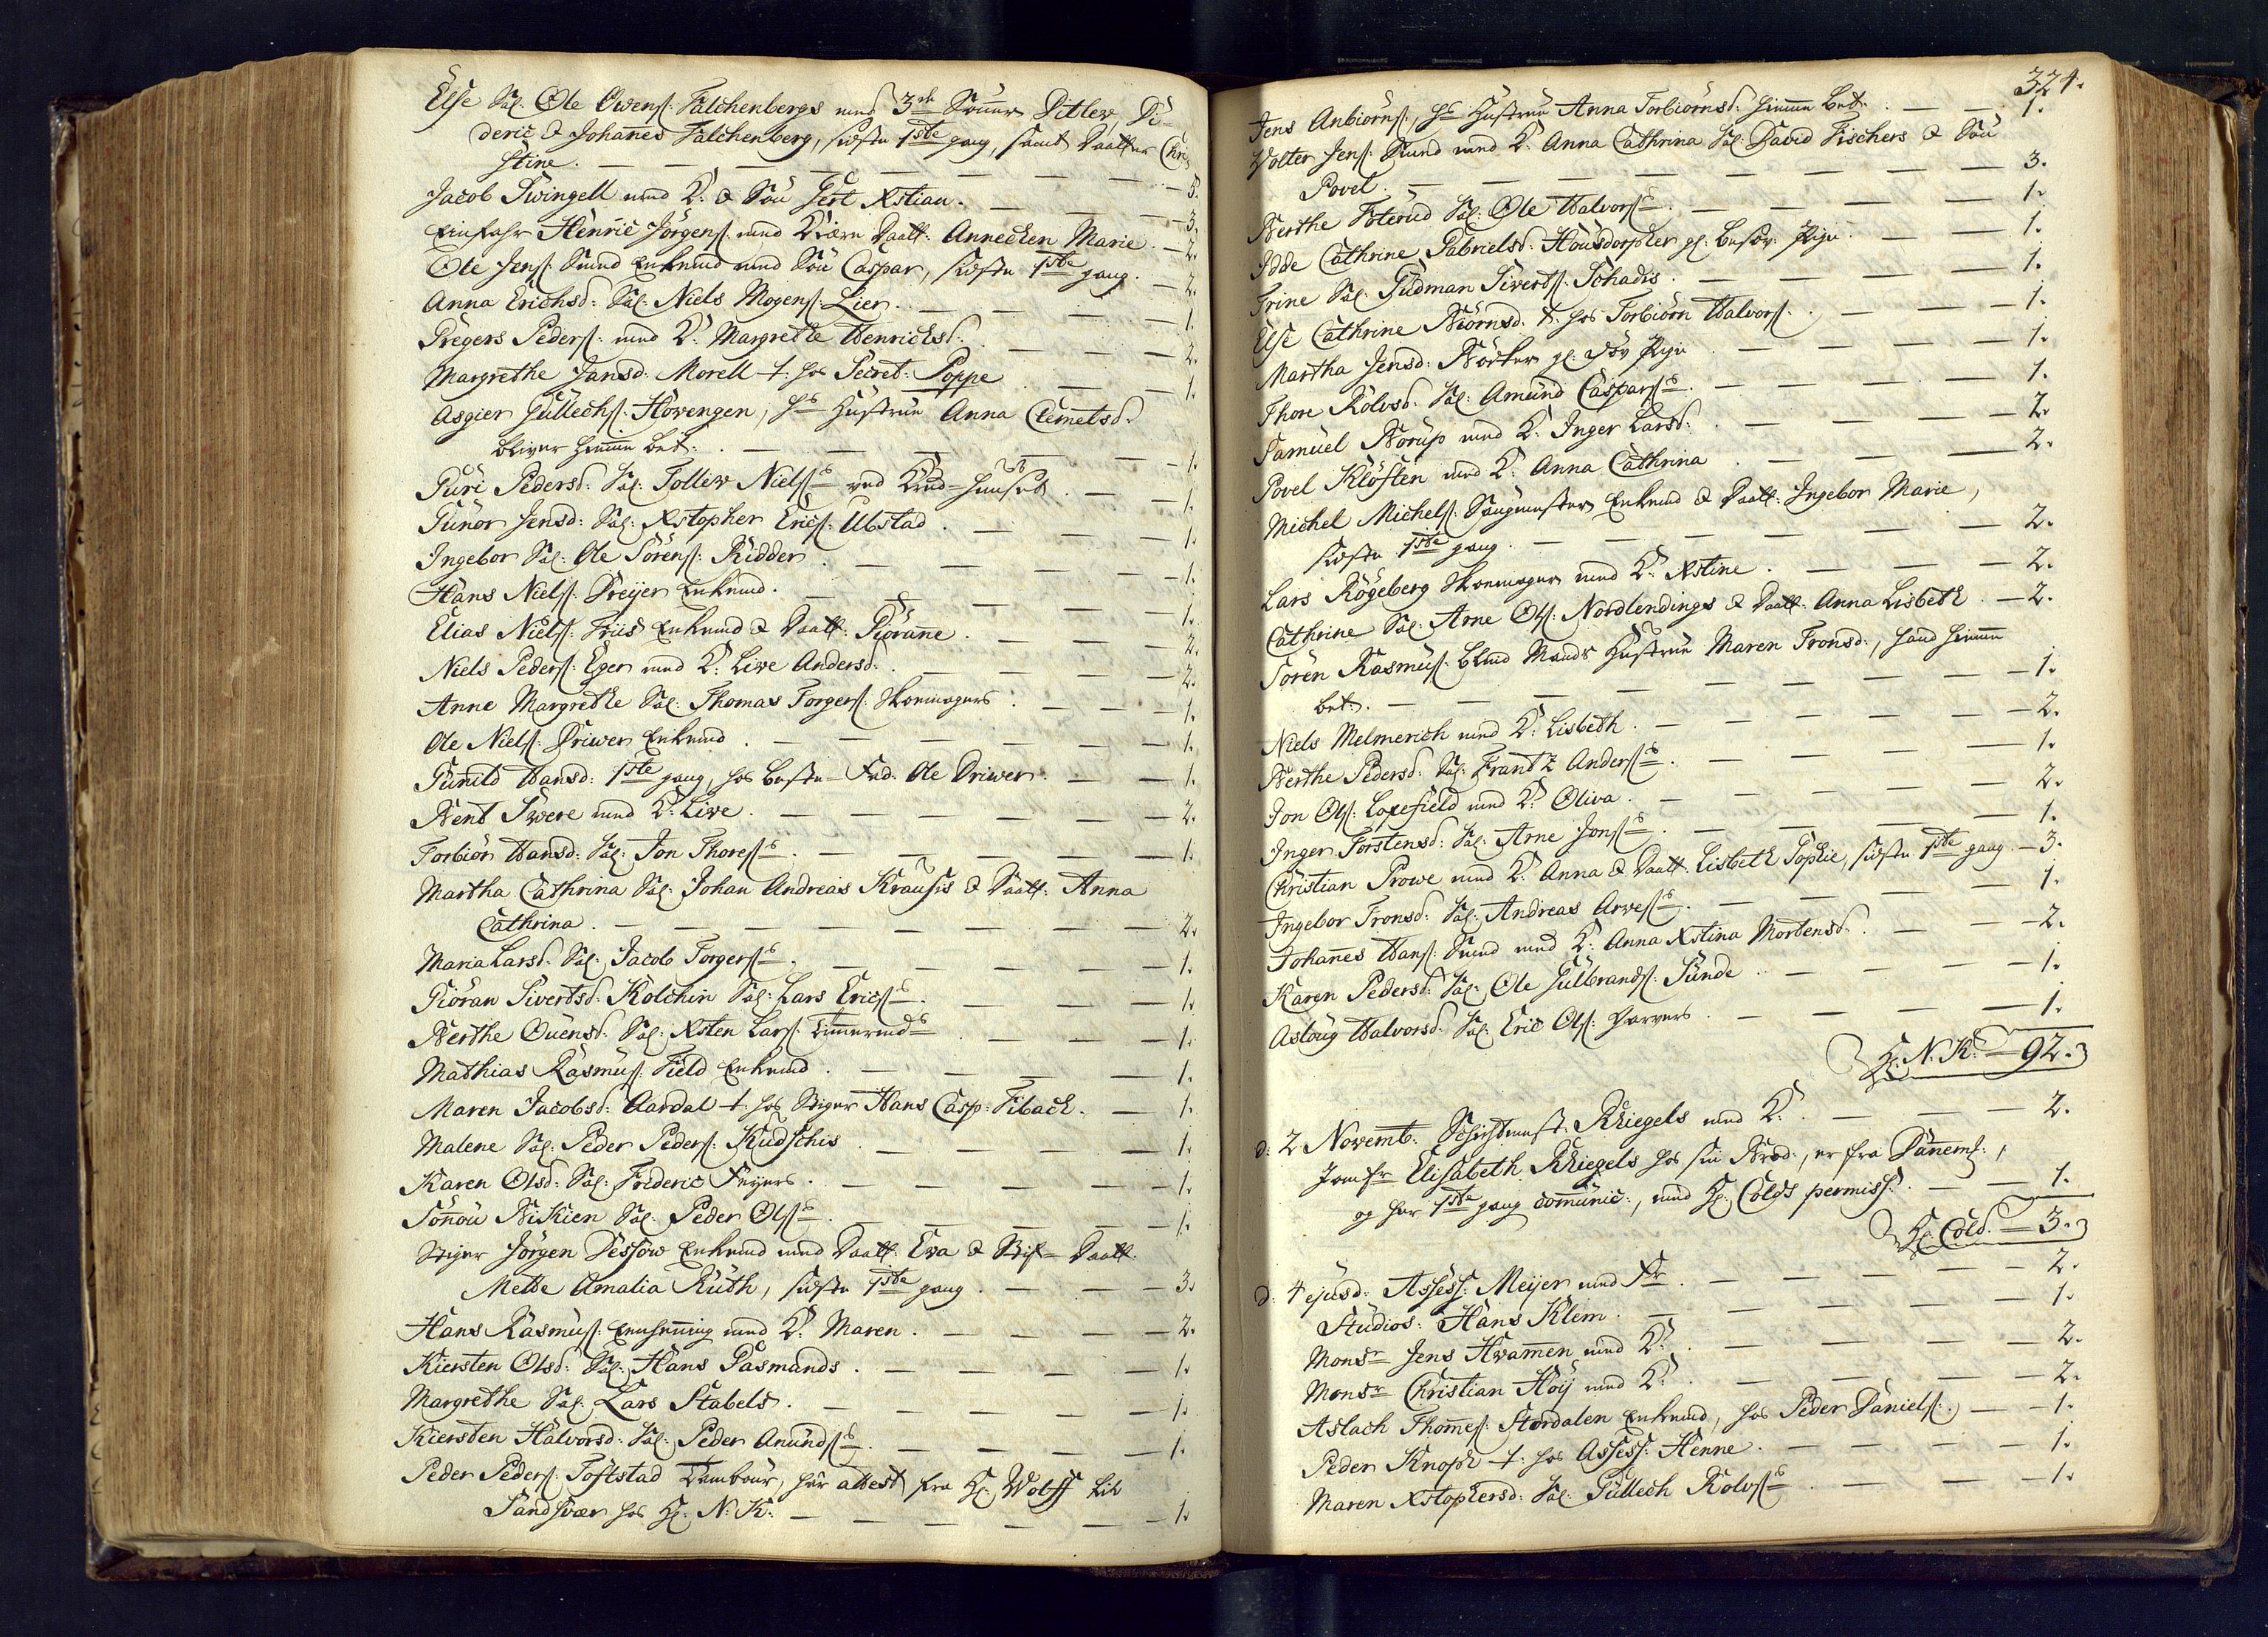 Else Sal: Ole Owens: Falchenbergs med 3de Sønner Ditlev, Di-
deric & Johannes Falchenberg, sidste 1ste gang, samt Daatter Chri
stine. — 5.
Jacob Swingell med K: & Søn Gert Xstian. — 3.
Einfahr Henric Jörgens: med Kiære Daatt: Annechen Marie. — 2.
Ole Jens: Smed Enkemd med Søn Caspar, sidste 1ste gang. — 2.
Anna Erichsd: Sal: Niels Mogens: Lier. — 1.
Gregers Peders: med K: Margrethe Henrichsd: — 2.
Margrethe Jansd: Morell t: hos Secret: Poppe — 1.
Asgier Gullechs: Hovengen, hs Hustrue Anna Clemetsd:
bliver hiemme bet: — 1.
Guri Pedersd: Sal: Tollew Nielss ved Krud-huuset. — 1.
Gunor Jensd: Sal: Xstopher Erics: Ulstad. — 1.
Ingebor Sal: Ole Sörens: Ridder. — 1.
Hans Niels: Dreijer Enkemd. — 1.
Elias Niels: Friis Enkemd & Daatt: Giöranne. — 2.
Niels Peders: Eger med K: Live Andersd: — 2.
Anne Margrethe Sal: Thomas Torgers: Skomagers. — 1.
Ole Niels: Driwer Enkemd. — 1.
Gunild Hansd: 1ste gang, hos beste-Fad: Ole Driwer. — 1.
Bent Swere med K: Live. — 2.
Torbiör Hansd: Sal: Jon Thoress. — 1.
Martha Cathrina Sal: Johan Andreas Krausis & Daatt: Anna
Cathrina. — 2.
Maria Larsd: Sal: Jacob Torgerss. — 1.
Giöran Sivertsd: Kolchin Sal: Lars Ericss. — 1.
Berthe Ouensd: Sal: Xsten Lars: Timmermds — 1.
Mathias Rasmus: Field Enkemd. — 1.
Maren Jacobsd: Aardal t: hos Stiger Hans Casp: Fibach. — 1.
Malene Sal: Peder Peders: Kudschis — 1.
Karen Olsd: Sal: Frideric Feijers. — 1.
Sönnou Sal: Peder Olss. — 1.
Stiger Jörgen Dessow Enkemd med Daatt: Eva & Stif-Daatt:
Mette Amalia Ruth, sidste 1ste gang. — 3.
Hans Rasmus: med K: Maren. — 2.
Kiersten Olsd: Sal: Hans Gasmands. — 1.
Margrethe Sal: Lars Stabels. — 1.
Kiersten Halvorsd: Sal: Peder Anundss. — 1.
Peder Peders: Toftstad Tambour, har attest fra Hr: Wolff til
Sandsvær hos Hr: N: K: — 1.
324.
Jens Anbiörns:, hs Hustrue Anna Torbiörnsd: hiemme bet: — 1.
Wolter Jens: Smed med K: Anna Cathrina Sal: David Fischers & Søn
Povel. — 3.
Berthe Foterud Sal: Ole Halvorss. — 1.
Edde Cathrine Gabrielsd: Hausdorpher gl: besov: Pige. — 1.
Trine Sal: Gudman Siverts: Schadis. — 1.
Else Cathrine Biörnsd: t: hos Torbiörn Halvors: — 1.
Martha Jensd: Börker gl: døv Pige — 1.
Thore Rolvsd: Sal: Amund Casparss. — 1.
Samuel Borup med K: Inger Larsd: — 2.
Povel Klöften med K: Anna Cathrina — 2.
Michel Michels: Saugmester Enkemd & Daatt: Ingebor Marie,
sidste 1ste gang. — 2.
Lars Rögeberg Skomager med K: Xstine. — 2.
Cathrine Sal: Arne Ols: Nordlendings & Daatt: Anna Lisbeth. — 2.
Sören Rasmus: blind Mands Hustrue Maren Tronsd:, hand hiemme
bet: — 1.
Niels Melmerich med K: Lisbeth. — 2.
Berthe Pedersd: Sal: Frantz Anderss. — 1.
Jon Ols: Loxefield med K: Oliva. — 2.
Inger Torstensd: Sal: Arne Jonss. — 1.
Christian Prowe med K: Anna & Daatt: Lisbeth Sophie, sidste 1ste gang. — 3.
Ingebor Tronsd: Sal: Andreas Arvess. — 1.
Johannes Hans: Smed med K: Anna Xstina Mortensd: — 2.
Karen Pedersd: Sal: Ole Gulbrands: Sunde. — 1.
Aslaug Halvorsd: Sal: Eric Ols: Garvers. — 1.
Hr: N: K: — 92.
d: 2 Novemb: Schichtmest: Kriegels med K: — 2.
Jomfr Elisabeth Kriegels hos sin Brod:, er fra Dannem:,
og har 1ste gang communic:, med Hr: Colds permiss: — 1.
Hr: Cold. — 3.
d: 4 ejusd: Assess: Meijer med Fr. — 2.
Studios: Hans Klem. — 1.
Monsr Jens Hvamen med K: — 2.
Monsr Christian Höij med K: — 2.
Aslach Thommes: Stordalen Enkemd, hos Peder Daniels: — 1.
Peder Knoph t: hos Assess: Henne. — 1.
Maren Xstophersd: Sal: Gullech Rolvss — 1.